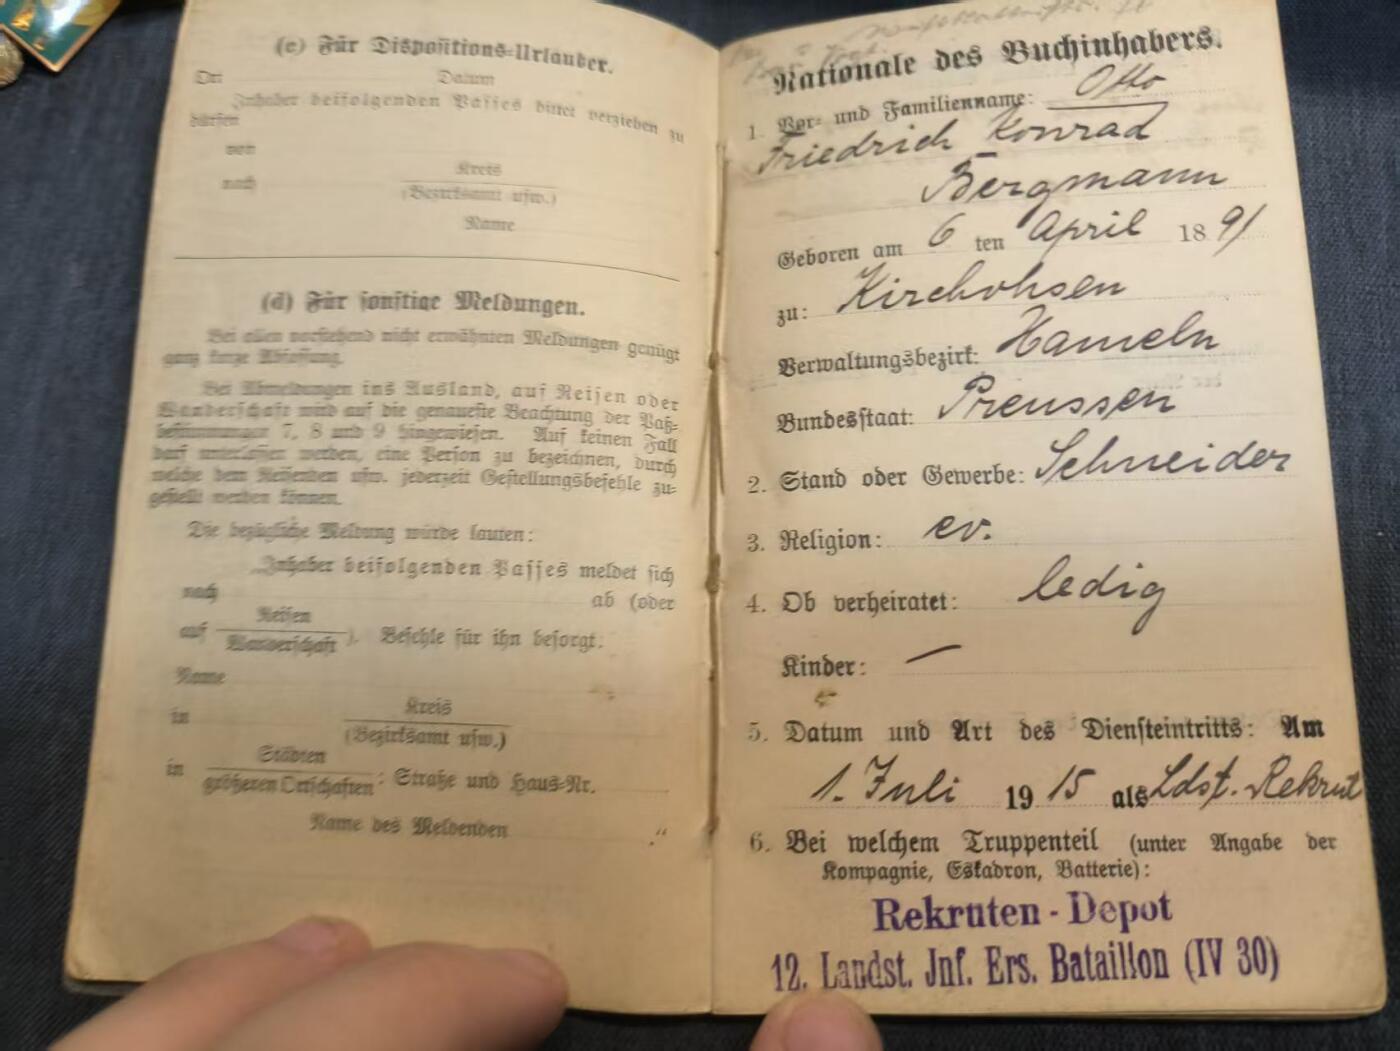 (c) Für Dispositions-Urlauber.
Ort Datum
Inhaber beifolgenden Passes bittet verziehen zu
dürfen
von
nach Kreis
(Bezirksamt usw.)
Name
(d) Für sonstige Meldungen.
Bei allen vorstehend nicht erwähnten Meldungen genügt
ganz kurze Abfassung.
Bei Abmeldungen ins Ausland, auf Reisen oder
Wanderschaft wird auf die genaueste Beachtung der Paß-
bestimmungen 7, 8 und 9 hingewiesen. Auf keinen Fall
darf unterlassen werden, eine Person zu bezeichnen, durch
welche dem Reisenden usw. jederzeit Gestellungsbefehle zu-
gestellt werden können.
Die bezügliche Meldung würde lauten:
„Inhaber beifolgenden Passes meldet sich
nach ab (oder
auf Reisen
Wanderschaft). Befehle für ihn besorgt:
Name
in Kreis
(Bezirksamt usw.)
in Städten
größeren Ortschaften: Straße und Haus-Nr.
Name des Meldenden “
Nationale des Buchinhabers.
1. Vor- und Familienname: Otto
Friedrich Konrad
Bergmann
Geboren am 6 ten April 18 91
zu: Kirchohsen
Verwaltungsbezirk: Hameln
Bundesstaat: Preussen
2. Stand oder Gewerbe: Schneider
3. Religion: ev.
4. Ob verheiratet: ledig
Kinder: —
5. Datum und Art des Diensteintritts: Am
1. Juli 19 15 als Ldst. Rekrut
6. Bei welchem Truppenteil (unter Angabe der
Kompagnie, Eskadron, Batterie):
Rekruten-Depot
12. Landst. Inf. Ers. Bataillon (IV 30)